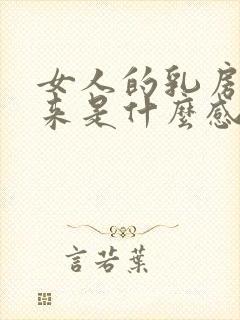 女人的乳房
来是什麼感
言若葉